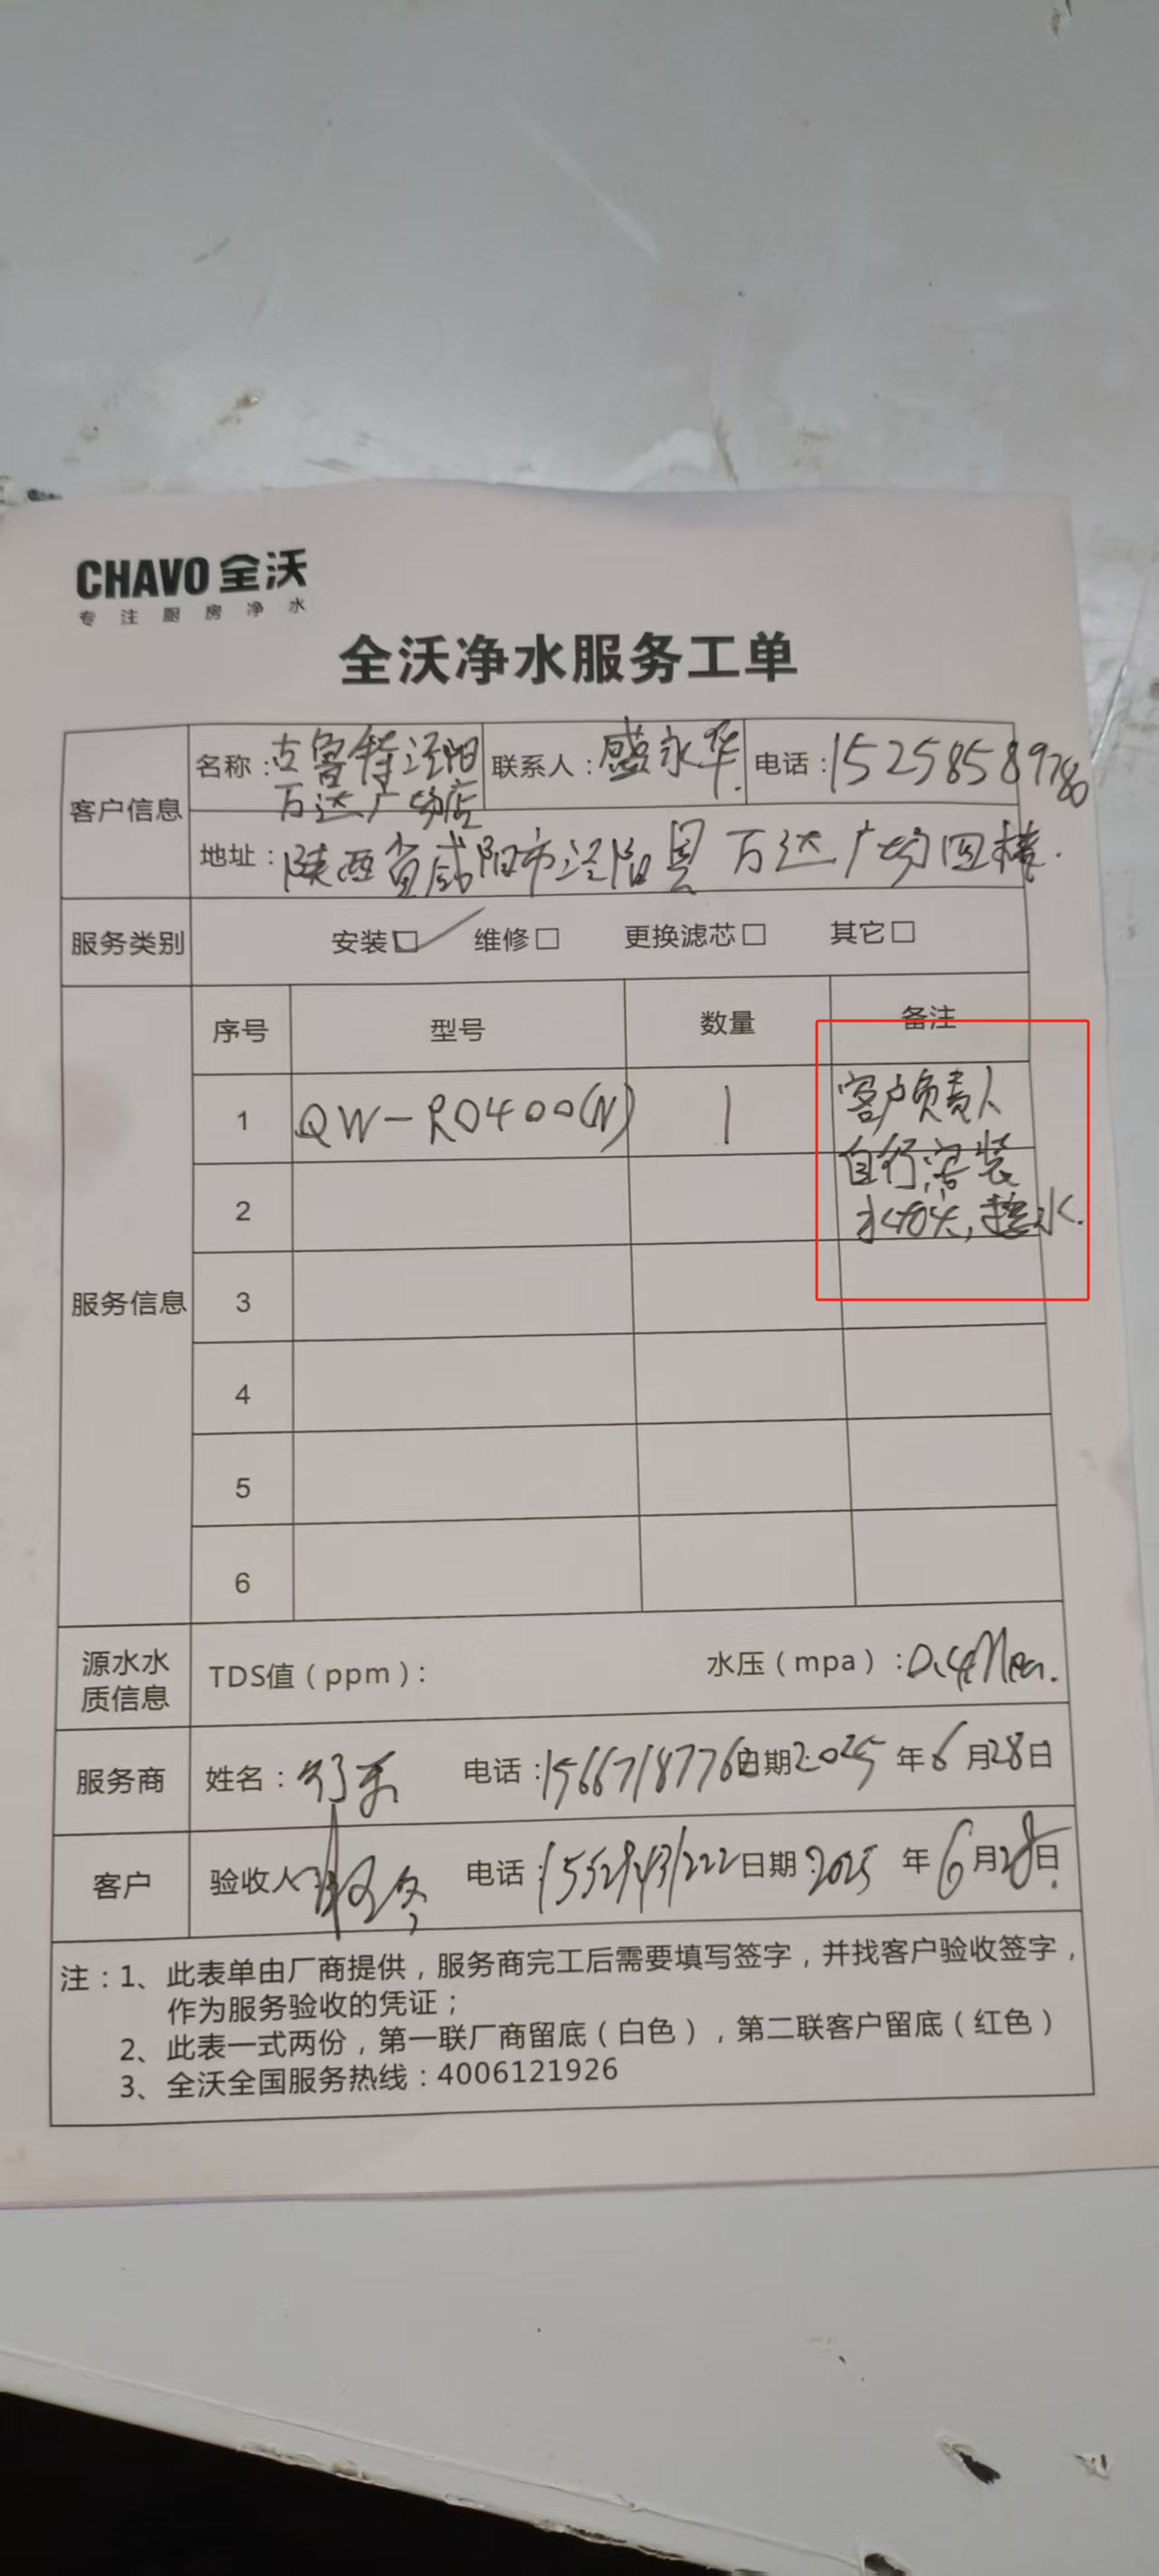 CHAVO 全沃
专注厨房净水
全沃净水服务工单
客户信息
名称：古鲁特泾阳万达广场店 联系人：盛永华 电话：15258589780
地址：陕西省咸阳市泾阳县万达广场四楼.
服务类别 安装☑ 维修□ 更换滤芯□ 其它□
服务信息
序号 型号 数量 备注
1 QW-RO400(N) 1 客户负责人
自行安装
水龙头,接水.
2
3
4
5
6
源水水质信息 TDS值（ppm）： 水压（mpa）：0.4Mpa.
服务商 姓名： 电话：15667187762 日期 2025年6月28日
客户 验收人 电话：15529431222 日期：2025年6月28日.
注：1、此表单由厂商提供，服务商完工后需要填写签字，并找客户验收签字，
作为服务验收的凭证；
2、此表一式两份，第一联厂商留底（白色），第二联客户留底（红色）
3、全沃全国服务热线：4006121926